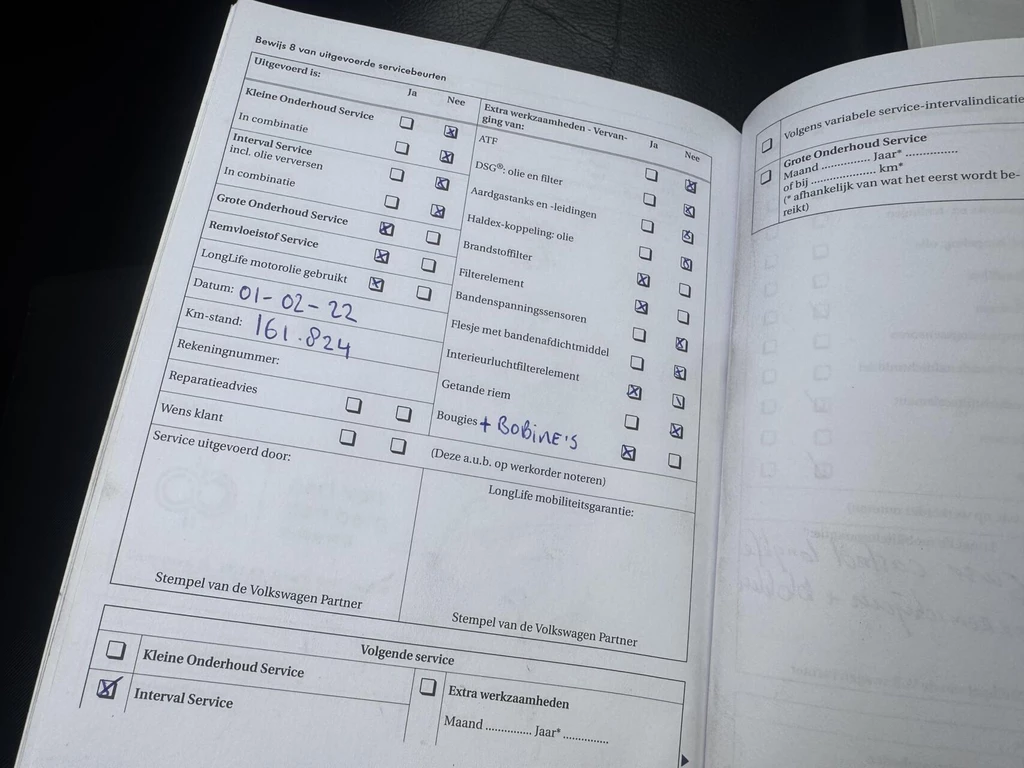 Bewijs 8 van uitgevoerde servicebeurten
Uitgevoerd is:
Ja Nee
Kleine Onderhoud Service
In combinatie
Interval Service
incl. olie verversen
In combinatie
Grote Onderhoud Service
Remvloeistof Service
LongLife motorolie gebruikt
Datum: 01-02-22
Km-stand: 161.824
Rekeningnummer:
Reparatieadvies
Wens klant
Service uitgevoerd door:
Stempel van de Volkswagen Partner
Extra werkzaamheden - Vervan-
ging van:
Ja Nee
ATF
DSG®: olie en filter
Aardgastanks en -leidingen
Haldex-koppeling: olie
Brandstoffilter
Filterelement
Bandenspanningssensoren
Flesje met bandenafdichtmiddel
Interieurluchtfilterelement
Getande riem
Bougies + BOBINE'S
(Deze a.u.b. op werkorder noteren)
LongLife mobiliteitsgarantie:
Stempel van de Volkswagen Partner
Volgende service
Kleine Onderhoud Service
Interval Service
Extra werkzaamheden
Maand .............. Jaar* ..............
Volgens variabele service-intervalindicatie
Grote Onderhoud Service
Maand .............. Jaar* ..............
of bij .................. km*
(* afhankelijk van wat het eerst wordt be-
reikt)